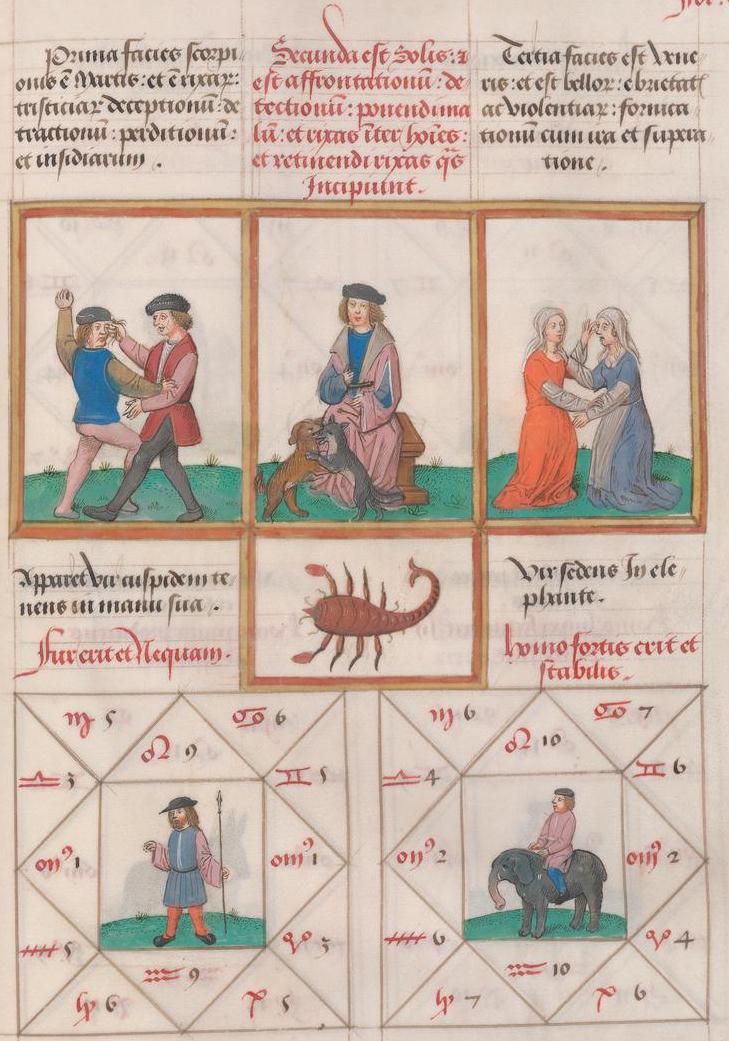 Prima facies scorpi
onis ē Martis: et ē rixaꝝ:
tristiciaꝝ deceptionū: de
tractionū: perditionū:
et insidiarum.
Secunda est Solis: ⁊
est affrontationū: de
tectionū: ponendi ma
lū: et rixas īter hoīes:
et retinendi rixas
Incipiunt.
Tertia facies est Vene
ris: et est belloꝝ: ebrietat
ac violentiaꝝ: fornica
tionū cum ira et supera
tione.
Apparet vir cuspidem te
nens in manu sua.
Fur erit et Nequam.
Vir sedens In ele
phante.
homo fortis erit et
stabilis.
♍ 5
♋ 6
♌ 9
♎ 3
♊ 5
1
1
5
♈ 3
♒ 9
6
5
♍ 6
♋ 7
♌ 10
♎ 4
♊ 6
2
2
6
♈ 4
♒ 10
7
6